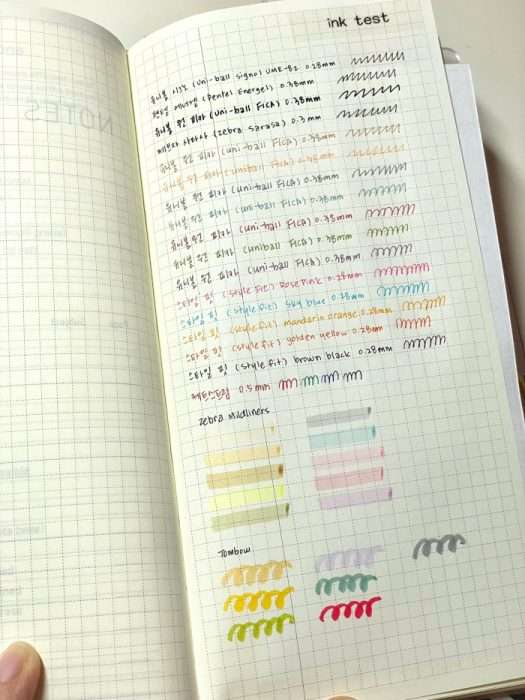 ink test
유니볼 시그노 (Uni-ball signo) UMR-82 0.28mm
펜텔 에너겔 (Pentel Energel) 0.38mm
유니볼 원 피카 (Uni-ball FICA) 0.38mm
제브라 사라사 (zebra sarasa) 0.3mm
유니볼 원 피카 (Uni-ball FICA) 0.38mm
유니볼 원 피카 (Uniball FICA) 0.38mm
유니볼 원 피카 (Uni-ball FICA) 0.38mm
유니볼 원 피카 (Uni-ball FICA) 0.38mm
유니볼 원 피카 (Uni-ball FICA) 0.38mm
유니볼 원 피카 (Uniball FICA) 0.38mm
유니볼 원 피카 (Uni-ball FICA) 0.38mm
스타일 핏 (Style Fit) Rose Pink 0.28mm
스타일 핏 (style fit) sky blue 0.28mm
스타일 핏 (style fit) mandarin orange 0.28mm
스타일 핏 (style fit) golden yellow 0.28mm
스타일 핏 (style fit) brown black 0.28mm
0.5mm
Zebra Mildliners
Tombow
NOTES